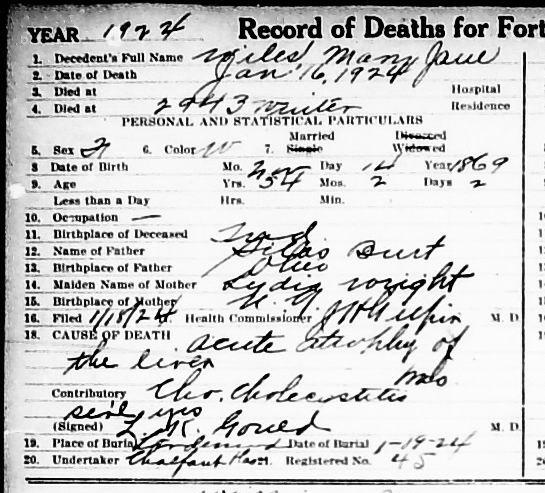 YEAR 1924 Record of Deaths for Fort
1. Decedent's Full Name Wiles Mary Jane
2. Date of Death Jan 16, 1924
3. Died at Hospital
4. Died at 2943 Winter Residence
PERSONAL AND STATISTICAL PARTICULARS
Married Divorced
5. Sex F 6. Color W 7. Single Widowed
8 Date of Birth Mo. Nov Day 14 Year 1869
9. Age Yrs. 54 Mos. 2 Days 2
Less than a Day Hrs. Min.
10. Occupation —
11. Birthplace of Deceased Ind
12. Name of Father Silas Burt
13. Birthplace of Father Ohio
14. Maiden Name of Mother Lydia Wright
15. Birthplace of Mother N. Y.
16. Filed 1/18/24 Health Commissioner M. D.
18. CAUSE OF DEATH acute atrophy of
the liver mos
Contributory Cho. Cholecystitis
sev'l yrs
(Signed) L. K. Gould M. D.
19. Place of Burial Lindenwood Date of Burial 1-19-24
20. Undertaker Chalfant 21. Registered No. 45